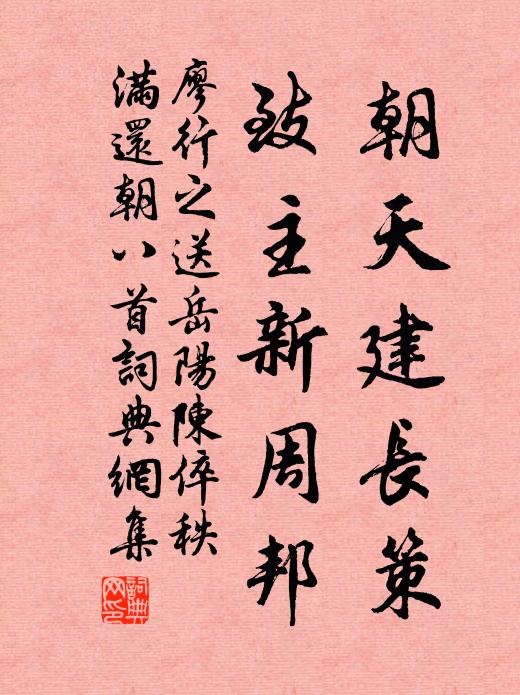 朝天建長策
致主新周邦
廖行之送岳陽陳倅秩
滿還朝八首詞典網集
詞典網印